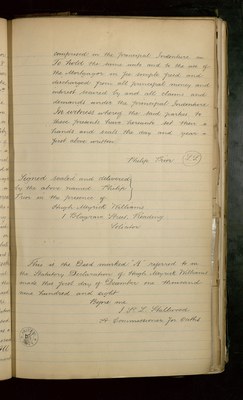 comprised in the principal Indenture in
To hold the same unto and to the use of
the Mortgagor in fee simple freed and
discharged from all principal money and
interest secured by and all claims and
demands under the principal Indenture
In witness whereof the said parties to
these presents have hereunto set their
hands and seals the day and year
first above written
Philip Tree LS
Signed Sealed and Delivered
by the above named Philip
Tree in the presence of
Hugh Meyrick Williams
1 Street, Reading
Solicitor
This is the Deed marked "A" referred to in
the Statutory Declaration of Hugh Meyrick Williams
made this first day of December one thousand
nine hundred and eight
Before me
A Commissioner for Oaths